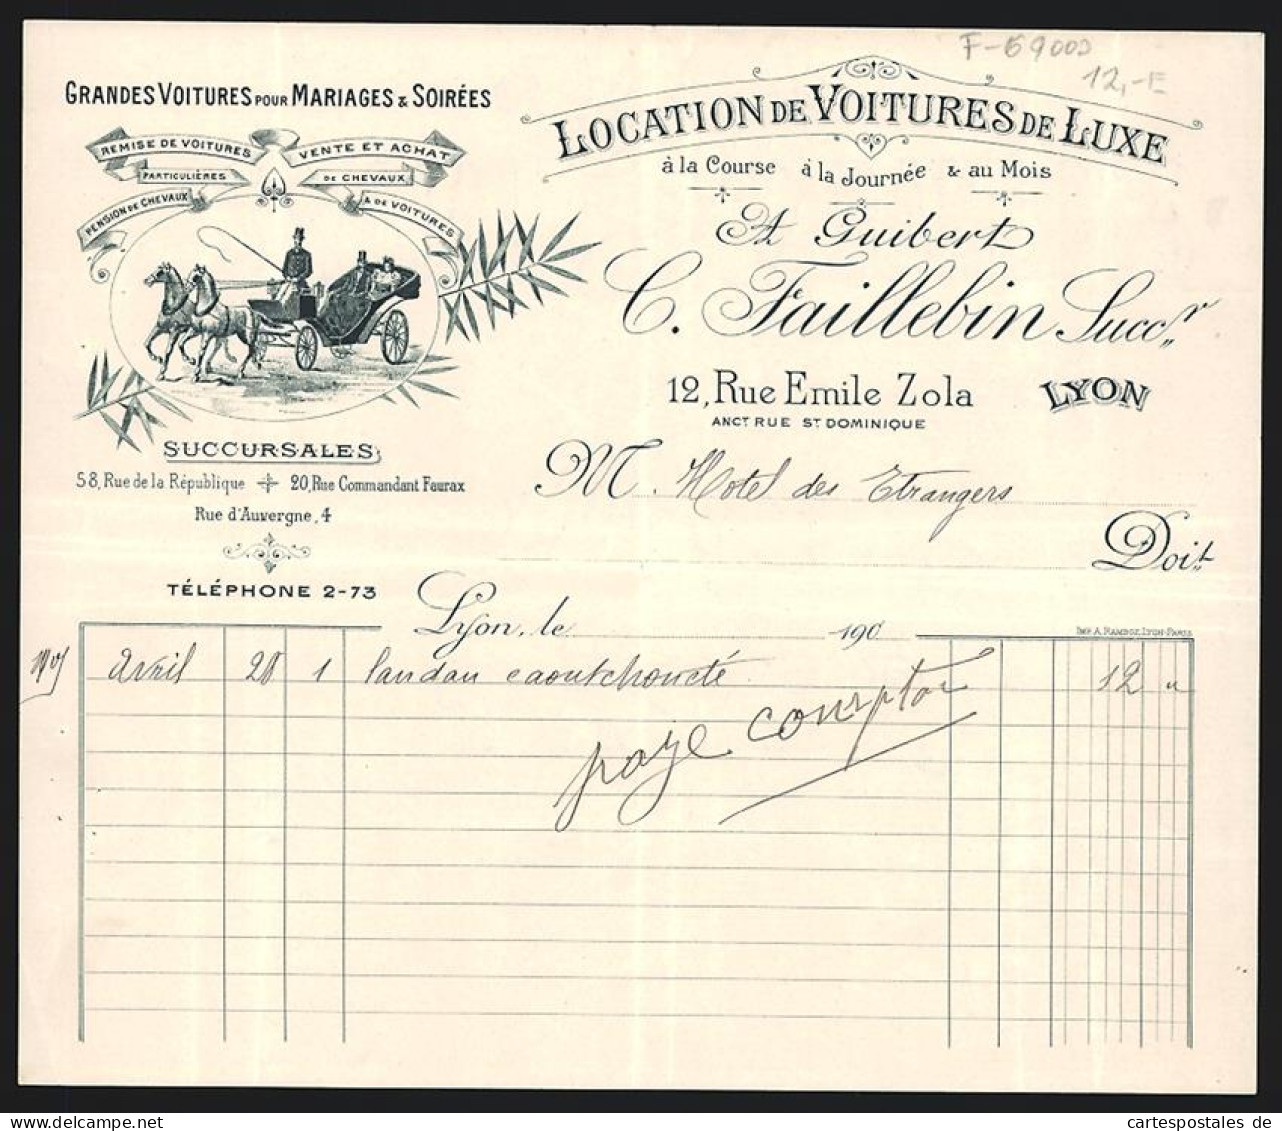 F-69000
12,-E
GRANDES VOITURES POUR MARIAGES & SOIRÉES
REMISE DE VOITURES
PARTICULIÈRES
VENTE ET ACHAT
DE CHEVAUX
PENSION DE CHEVAUX
& DE VOITURES
LOCATION DE VOITURES DE LUXE
à la Course à la Journée & au Mois
A Guibert
C. Faillebin Succr
12, Rue Emile Zola LYON
ANCT RUE ST DOMINIQUE
SUCCURSALES
58, Rue de la République 20, Rue Commandant Faurax
Rue d'Auvergne, 4
TÉLÉPHONE 2-73
M. Hotel des Etrangers
Doit
Lyon, le 190
IMP. A. RAMBOZ, LYON-PARIS
1905 avril 20 1 landau caoutchoucté 12 "
paye comptor
cartespostales de